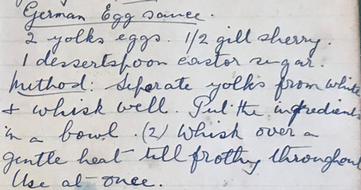 German Egg sauce.
2 yolks eggs. 1/2 gill sherry.
1 dessertspoon castor sugar.
Method: Seperate yolks from white
& whisk well. Put the ingredients
in a bowl. (2) Whisk over a
gentle heat till frothy throughou
Use at once.